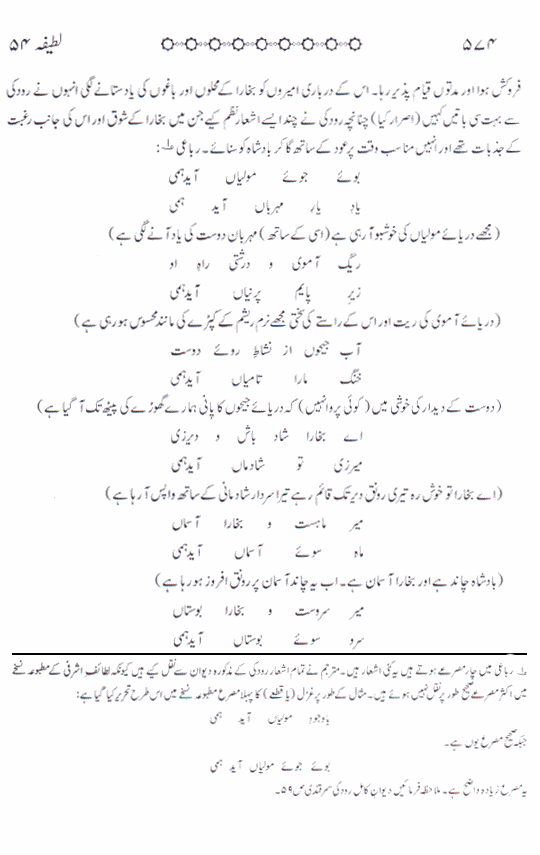 ۵۷۴ لطیفہ ۵۴
فروکش ہوا اور مدتوں قیام پذیر رہا۔ اس کے درباری امیروں کو بخارا کے محلوں اور باغوں کی یاد ستانے لگی انہوں نے رودکی
سے بہت سی باتیں کہیں (اصرار کیا) چنانچہ رودکی نے چند ایسے اشعار نظم کیے جن میں بخارا کے شوق اور اس کی جانب رغبت
کے جذبات تھے اور انہیں مناسب وقت پر عود کے ساتھ گا کر بادشاہ کو سنائے۔ رباعی ؎۱:
بوئے جوئے مولیاں آید ہمی
یادِ یارِ مہرباں آید ہمی
(مجھے دریائے مولیاں کی خوشبو آ رہی ہے (اسی کے ساتھ) مہربان دوست کی یاد آنے لگی ہے)
ریگ آموی و درشتی راہِ او
زیرِ پایم پرنیاں آید ہمی
(دریائے آموی کی ریت اور اس کے راستے کی سختی مجھے نرم ریشم کے کپڑے کی مانند محسوس ہو رہی ہے)
آب جیحوں از نشاطِ روئے دوست
خنگ مارا تامیاں آید ہمی
(دوست کے دیدار کی خوشی میں (کوئی پروا نہیں) کہ دریائے جیحوں کا پانی ہمارے گھوڑے کی پیٹھ تک آ گیا ہے)
اے بخارا شاد باش و دیرزی
میرزی تو شادماں آید ہمی
(اے بخارا تو خوش رہ تیری رونق دیر تک قائم رہے تیرا سردار شادمانی کے ساتھ واپس آ رہا ہے)
میر ماہست و بخارا آسماں
ماہ سوئے آسماں آید ہمی
(بادشاہ چاند ہے اور بخارا آسمان ہے۔ اب یہ چاند آسمان پر رونق افروز ہو رہا ہے)
میر سروست و بخارا بوستاں
سرو سوئے بوستاں آید ہمی
؎۱ رباعی میں چار مصرعے ہوتے ہیں یہ کئی اشعار ہیں۔ مترجم نے تمام اشعار رودکی کے مذکورہ دیوان سے نقل کیے ہیں کیونکہ لطائف اشرفی کے مطبوعہ نسخے
میں اکثر مصرعے صحیح طور پر نقل نہیں ہوئے ہیں۔ مثال کے طور پر غزل (یا قطعے) کا پہلا مصرع مطبوعہ نسخے میں اس طرح تحریر کیا گیا ہے:
باوجود مولیاں آید ہمی
جبکہ صحیح مصرع یوں ہے۔
بوئے جوئے مولیاں آید ہمی
یہ مصرع زیادہ واضح ہے۔ ملاحظہ فرمائیں دیوان کامل رودکی سمرقندی ص ۵۹۔